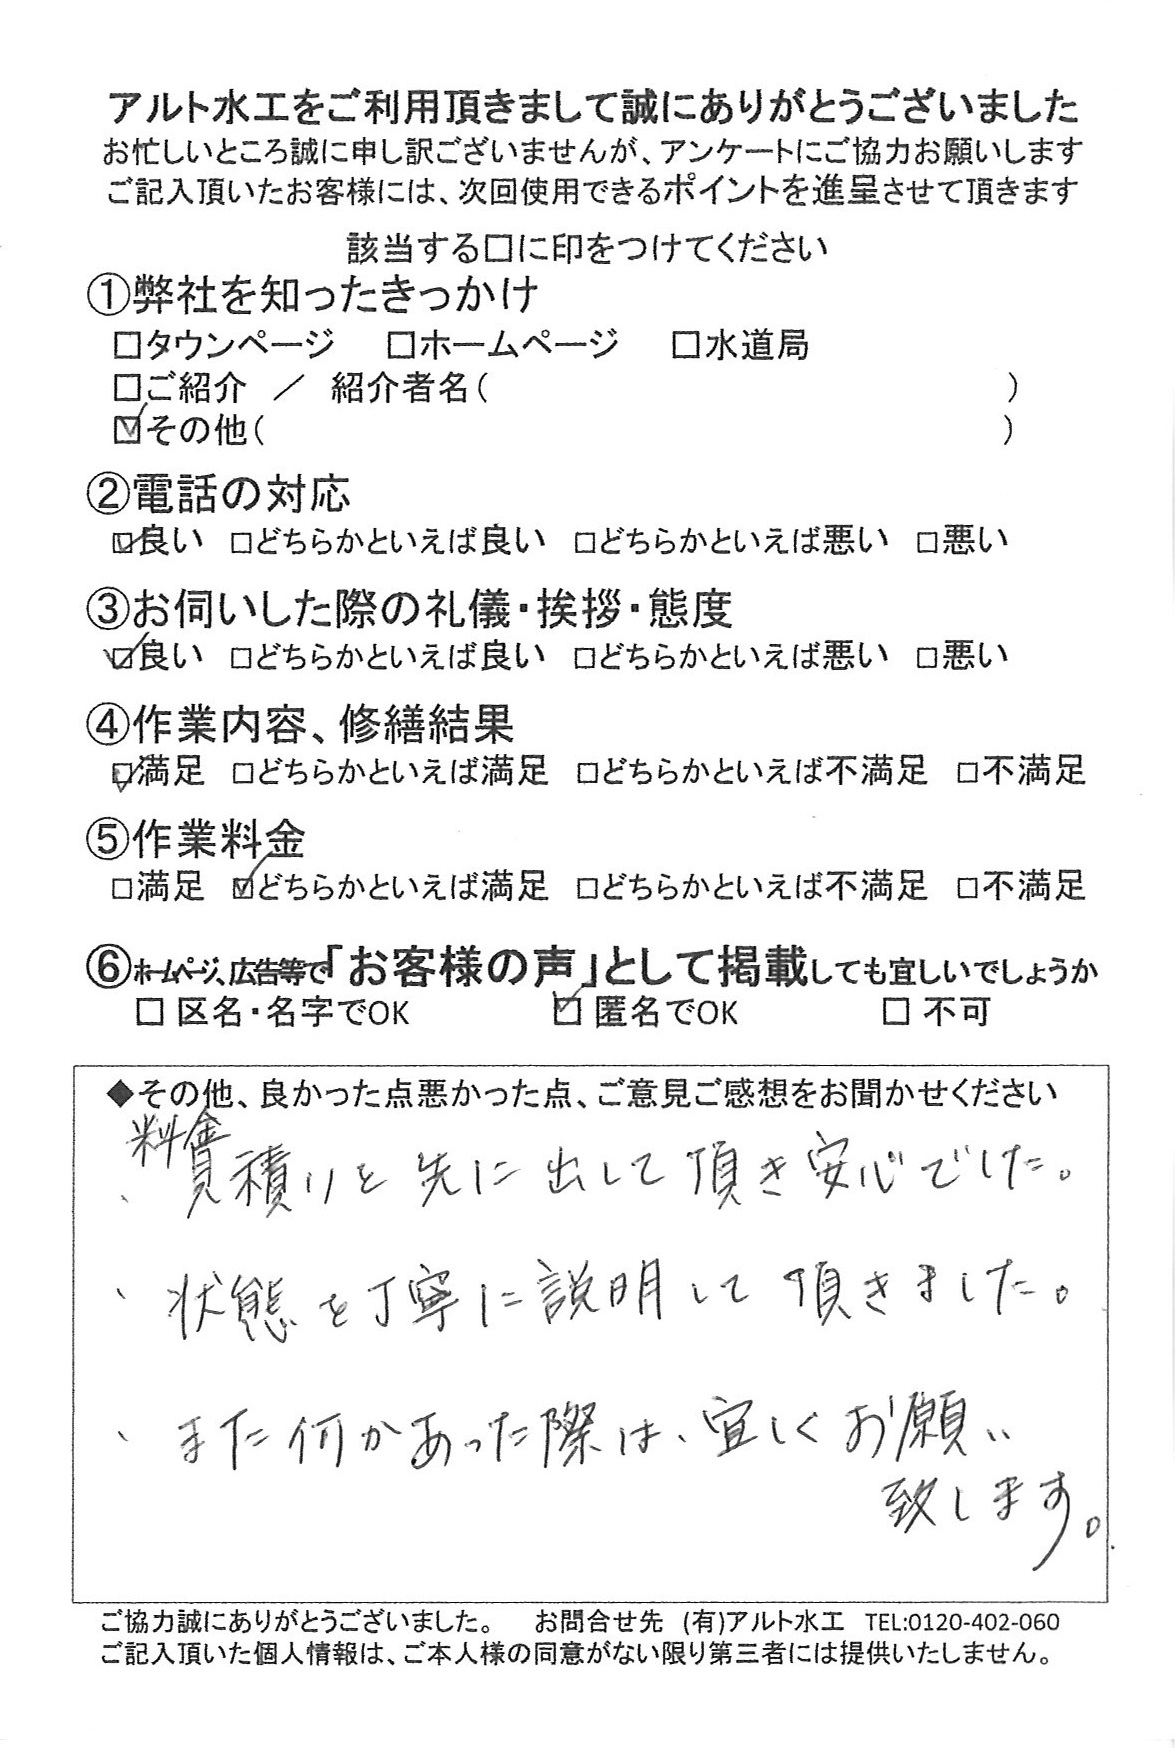 アルト水工をご利用頂きまして誠にありがとうございました
お忙しいところ誠に申し訳ございませんが、アンケートにご協力お願いします
ご記入頂いたお客様には、次回使用できるポイントを進呈させて頂きます
該当する□に印をつけてください
①弊社を知ったきっかけ
□タウンページ □ホームページ □水道局
□ご紹介 ／ 紹介者名( )
☑その他( )
②電話の対応
☑良い □どちらかといえば良い □どちらかといえば悪い □悪い
③お伺いした際の礼儀・挨拶・態度
☑良い □どちらかといえば良い □どちらかといえば悪い □悪い
④作業内容、修繕結果
☑満足 □どちらかといえば満足 □どちらかといえば不満足 □不満足
⑤作業料金
□満足 ☑どちらかといえば満足 □どちらかといえば不満足 □不満足
⑥ホームページ、広告等で「お客様の声」として掲載しても宜しいでしょうか
□ 区名・名字でOK ☑ 匿名でOK □ 不可
◆その他、良かった点悪かった点、ご意見ご感想をお聞かせください
料金
・見積りを先に出して頂き安心でした。
・状態を丁寧に説明して頂きました。
・また何かあった際は、宜しくお願い
致します。
ご協力誠にありがとうございました。 お問合せ先 (有)アルト水工 TEL:0120-402-060
ご記入頂いた個人情報は、ご本人様の同意がない限り第三者には提供いたしません。